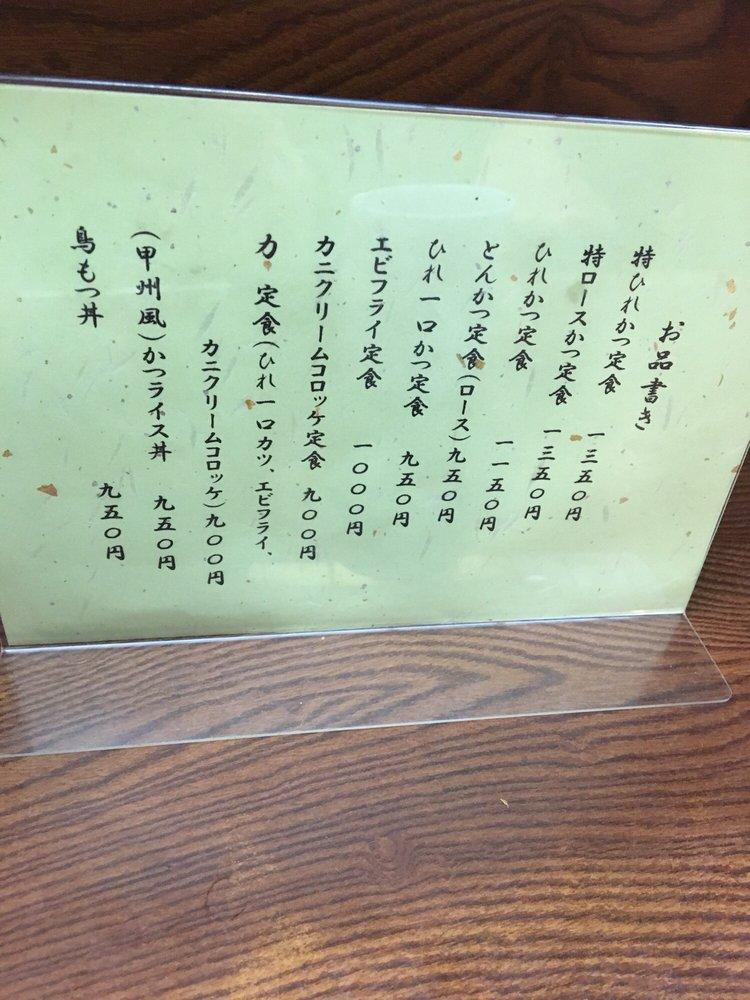 お品書き
特ひれかつ定食 一三五〇円
特ロースかつ定食 一三五〇円
ひれかつ定食 一一五〇円
とんかつ定食(ロース)九五〇円
ひれ一口かつ定食 九五〇円
エビフライ定食 一〇〇〇円
カニクリームコロッケ定食 九〇〇円
力 定食(ひれ一口カツ、エビフライ、
カニクリームコロッケ)九〇〇円
(甲州風)かつライス丼 九五〇円
鳥もつ丼 九五〇円